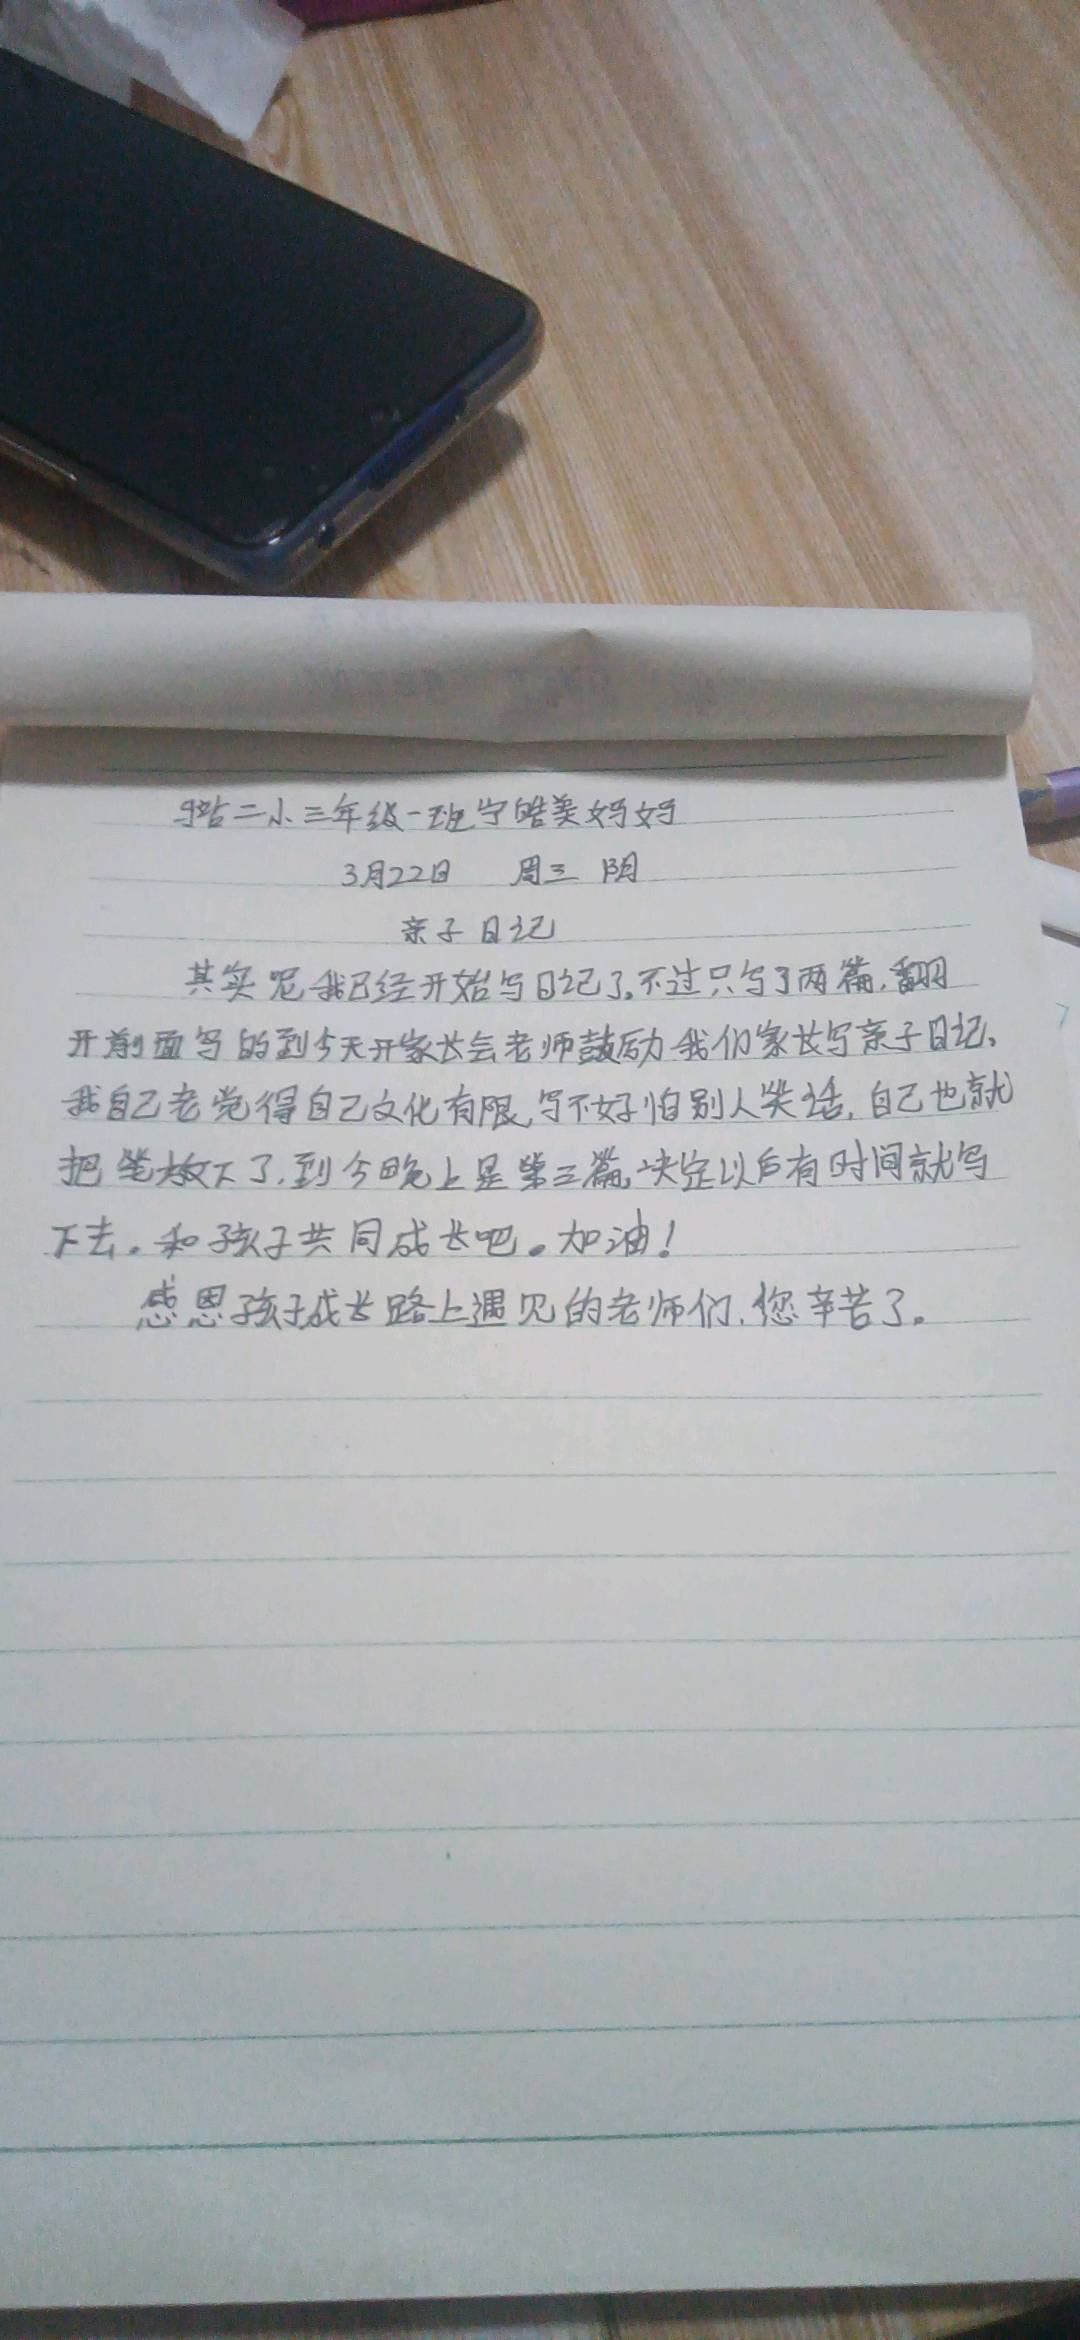 马站二小三年级一班宁皓美妈妈
3月22日 周三 阴
亲子日记
其实呢我已经开始写日记了。不过只写了两篇，翻
开前面写的到今天开家长会老师鼓励我们家长写亲子日记。
我自己老觉得自己文化有限，写不好怕别人笑话，自己也就
把笔放下了，到今晚上是第三篇，决定以后有时间就写
下去。和孩子共同成长吧。加油！
感恩孩子成长路上遇见的老师们，您辛苦了。